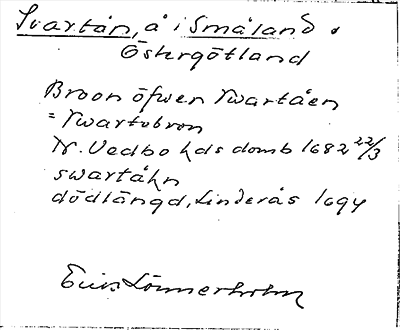 Svartån, å i Småland o
Östergötland
Broon öfwer Swartåen
= Swartobron
N. Vedbo hds domb 1682 22/3
swartåhn
dödlängd, Linderås 1694
Eric Lönnerholm